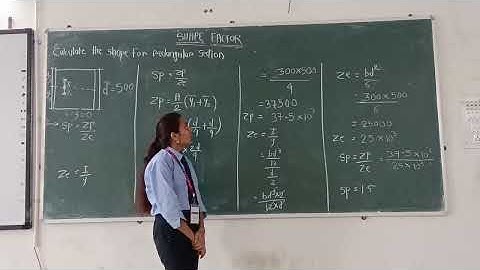 SHAPE FACTOR
Calculate the shape for rectangular section
d=500
SP = ZP
Ze
Ze = I
y
SP = ZP
Ze
ZP = A
2 (y̅₁+y̅₂)
(d/4 + d/4)
× 2d
4
= 300×500
4
= 37500
ZP = 37.5×10³
Ze = I
y
= bd³
12
d
2
Ze = bd²
6
= 300×500
6
= 25000
Ze = 25×10³
SP = ZP = 37.5×10³
Ze 25×10³
SP = 1.5